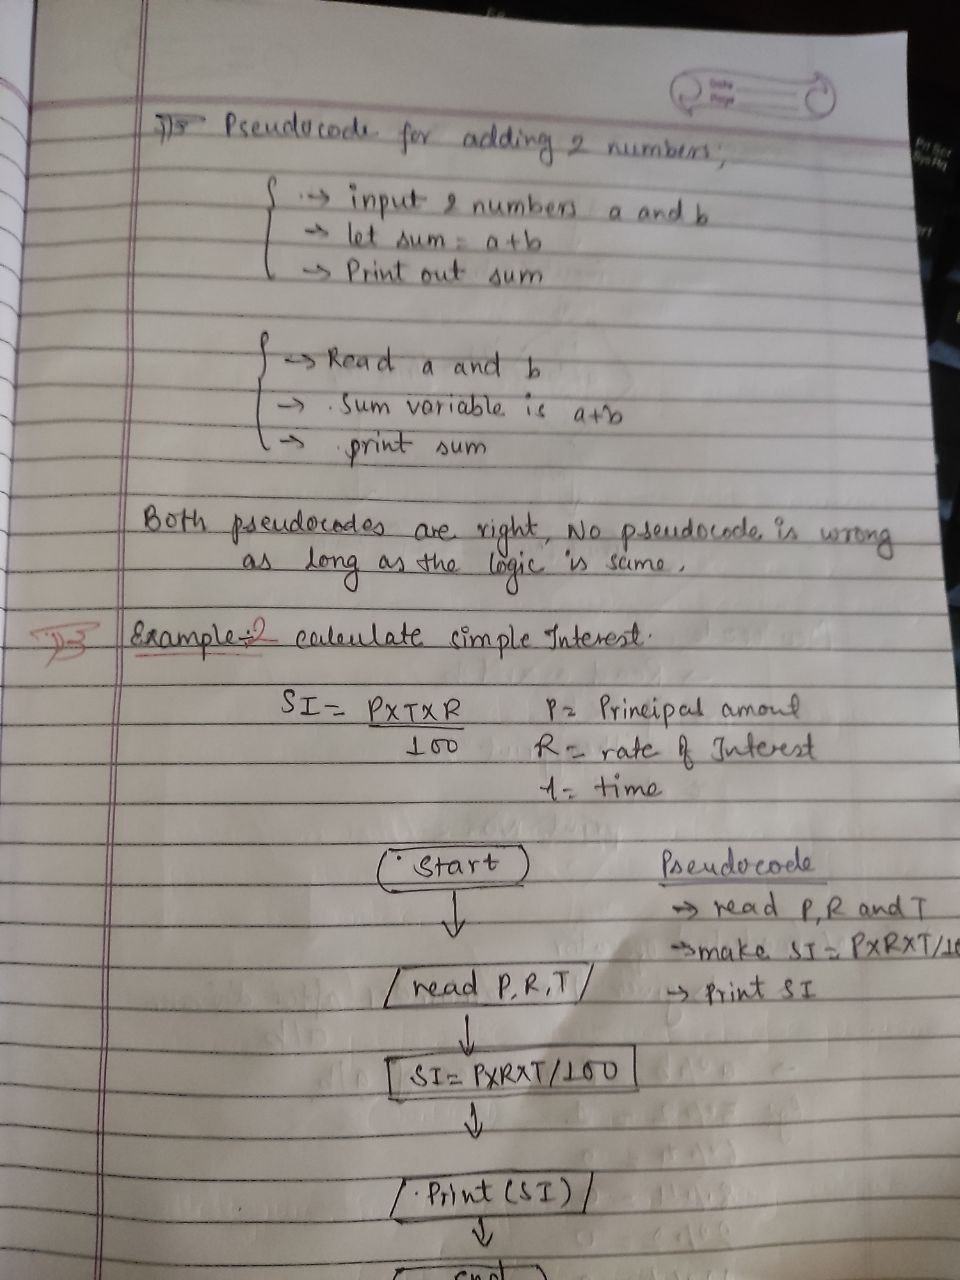 Pseudocode for adding 2 numbers;
→ input 2 numbers a and b
→ let sum = a+b
→ Print out sum
→ Read a and b
→ sum variable is a+b
→ print sum
Both pseudocodes are right, No pseudocode is wrong
as long as the logic is same.
Example-2 calculate simple Interest.
SI = PXTXR P= Principal amout
100 R= rate of Interest
t= time
Start
Pseudocode
→ read P,R and T
→ make SI = PXRXT/10
→ Print SI
read P,R,T
SI= PXRXT/100
Print (SI)
end